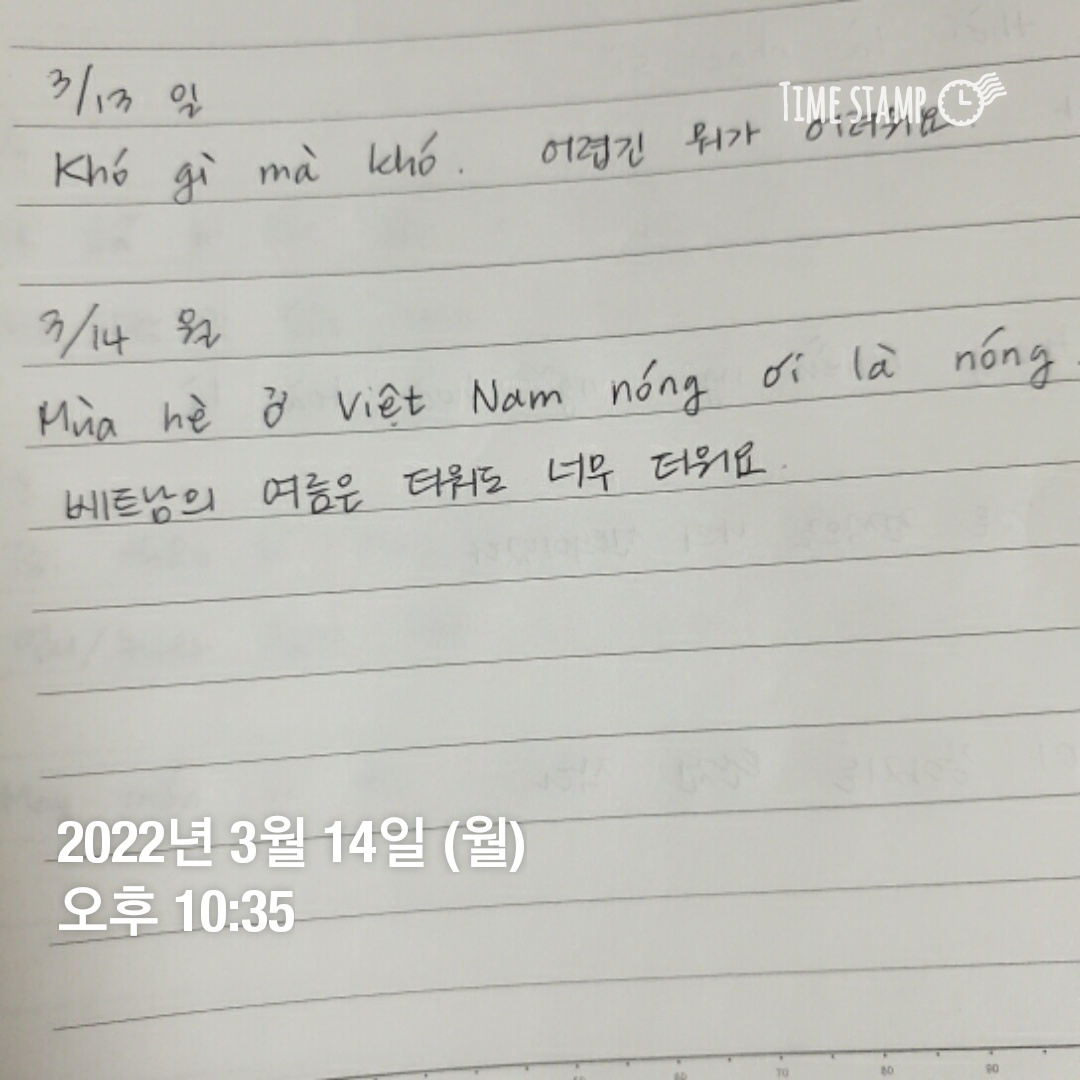 3/13 일
TIME STAMP
Khó gì mà khó. 어렵긴 뭐가 어려워요.
3/14 월
Mùa hè ở Việt Nam nóng ơi là nóng.
베트남의 여름은 더워도 너무 더워요.
2022년 3월 14일 (월)
오후 10:35
70
80
90